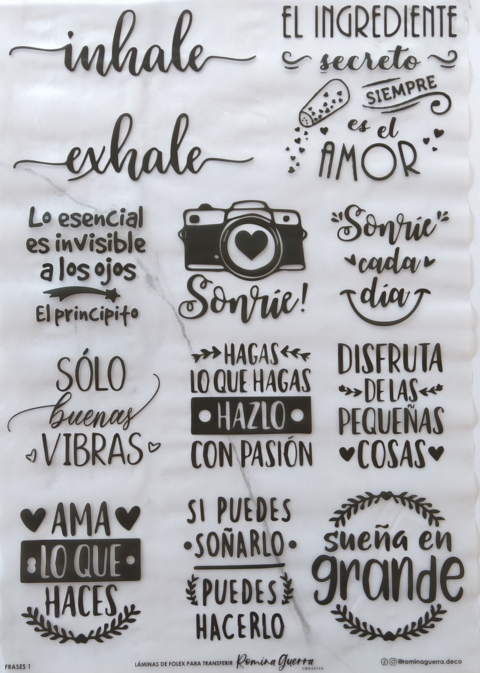 inhale
exhale
EL INGREDIENTE
secreto
SIEMPRE
es el
AMOR
Lo esencial
es invisible
a los ojos
El principito
Sonríe!
"Sonríe"
cada
día
SÓLO
buenas
VIBRAS
HAGAS
LO QUE HAGAS
HAZLO
CON PASIÓN
DISFRUTA
DE LAS
PEQUEÑAS
COSAS
AMA
LO QUE
HACES
SI PUEDES
SOÑARLO
PUEDES
HACERLO
sueña en
grande
FRASES 1
LÁMINAS DE FOLEX PARA TRANSFERIR Romina Guerra
@rominaguerra.deco